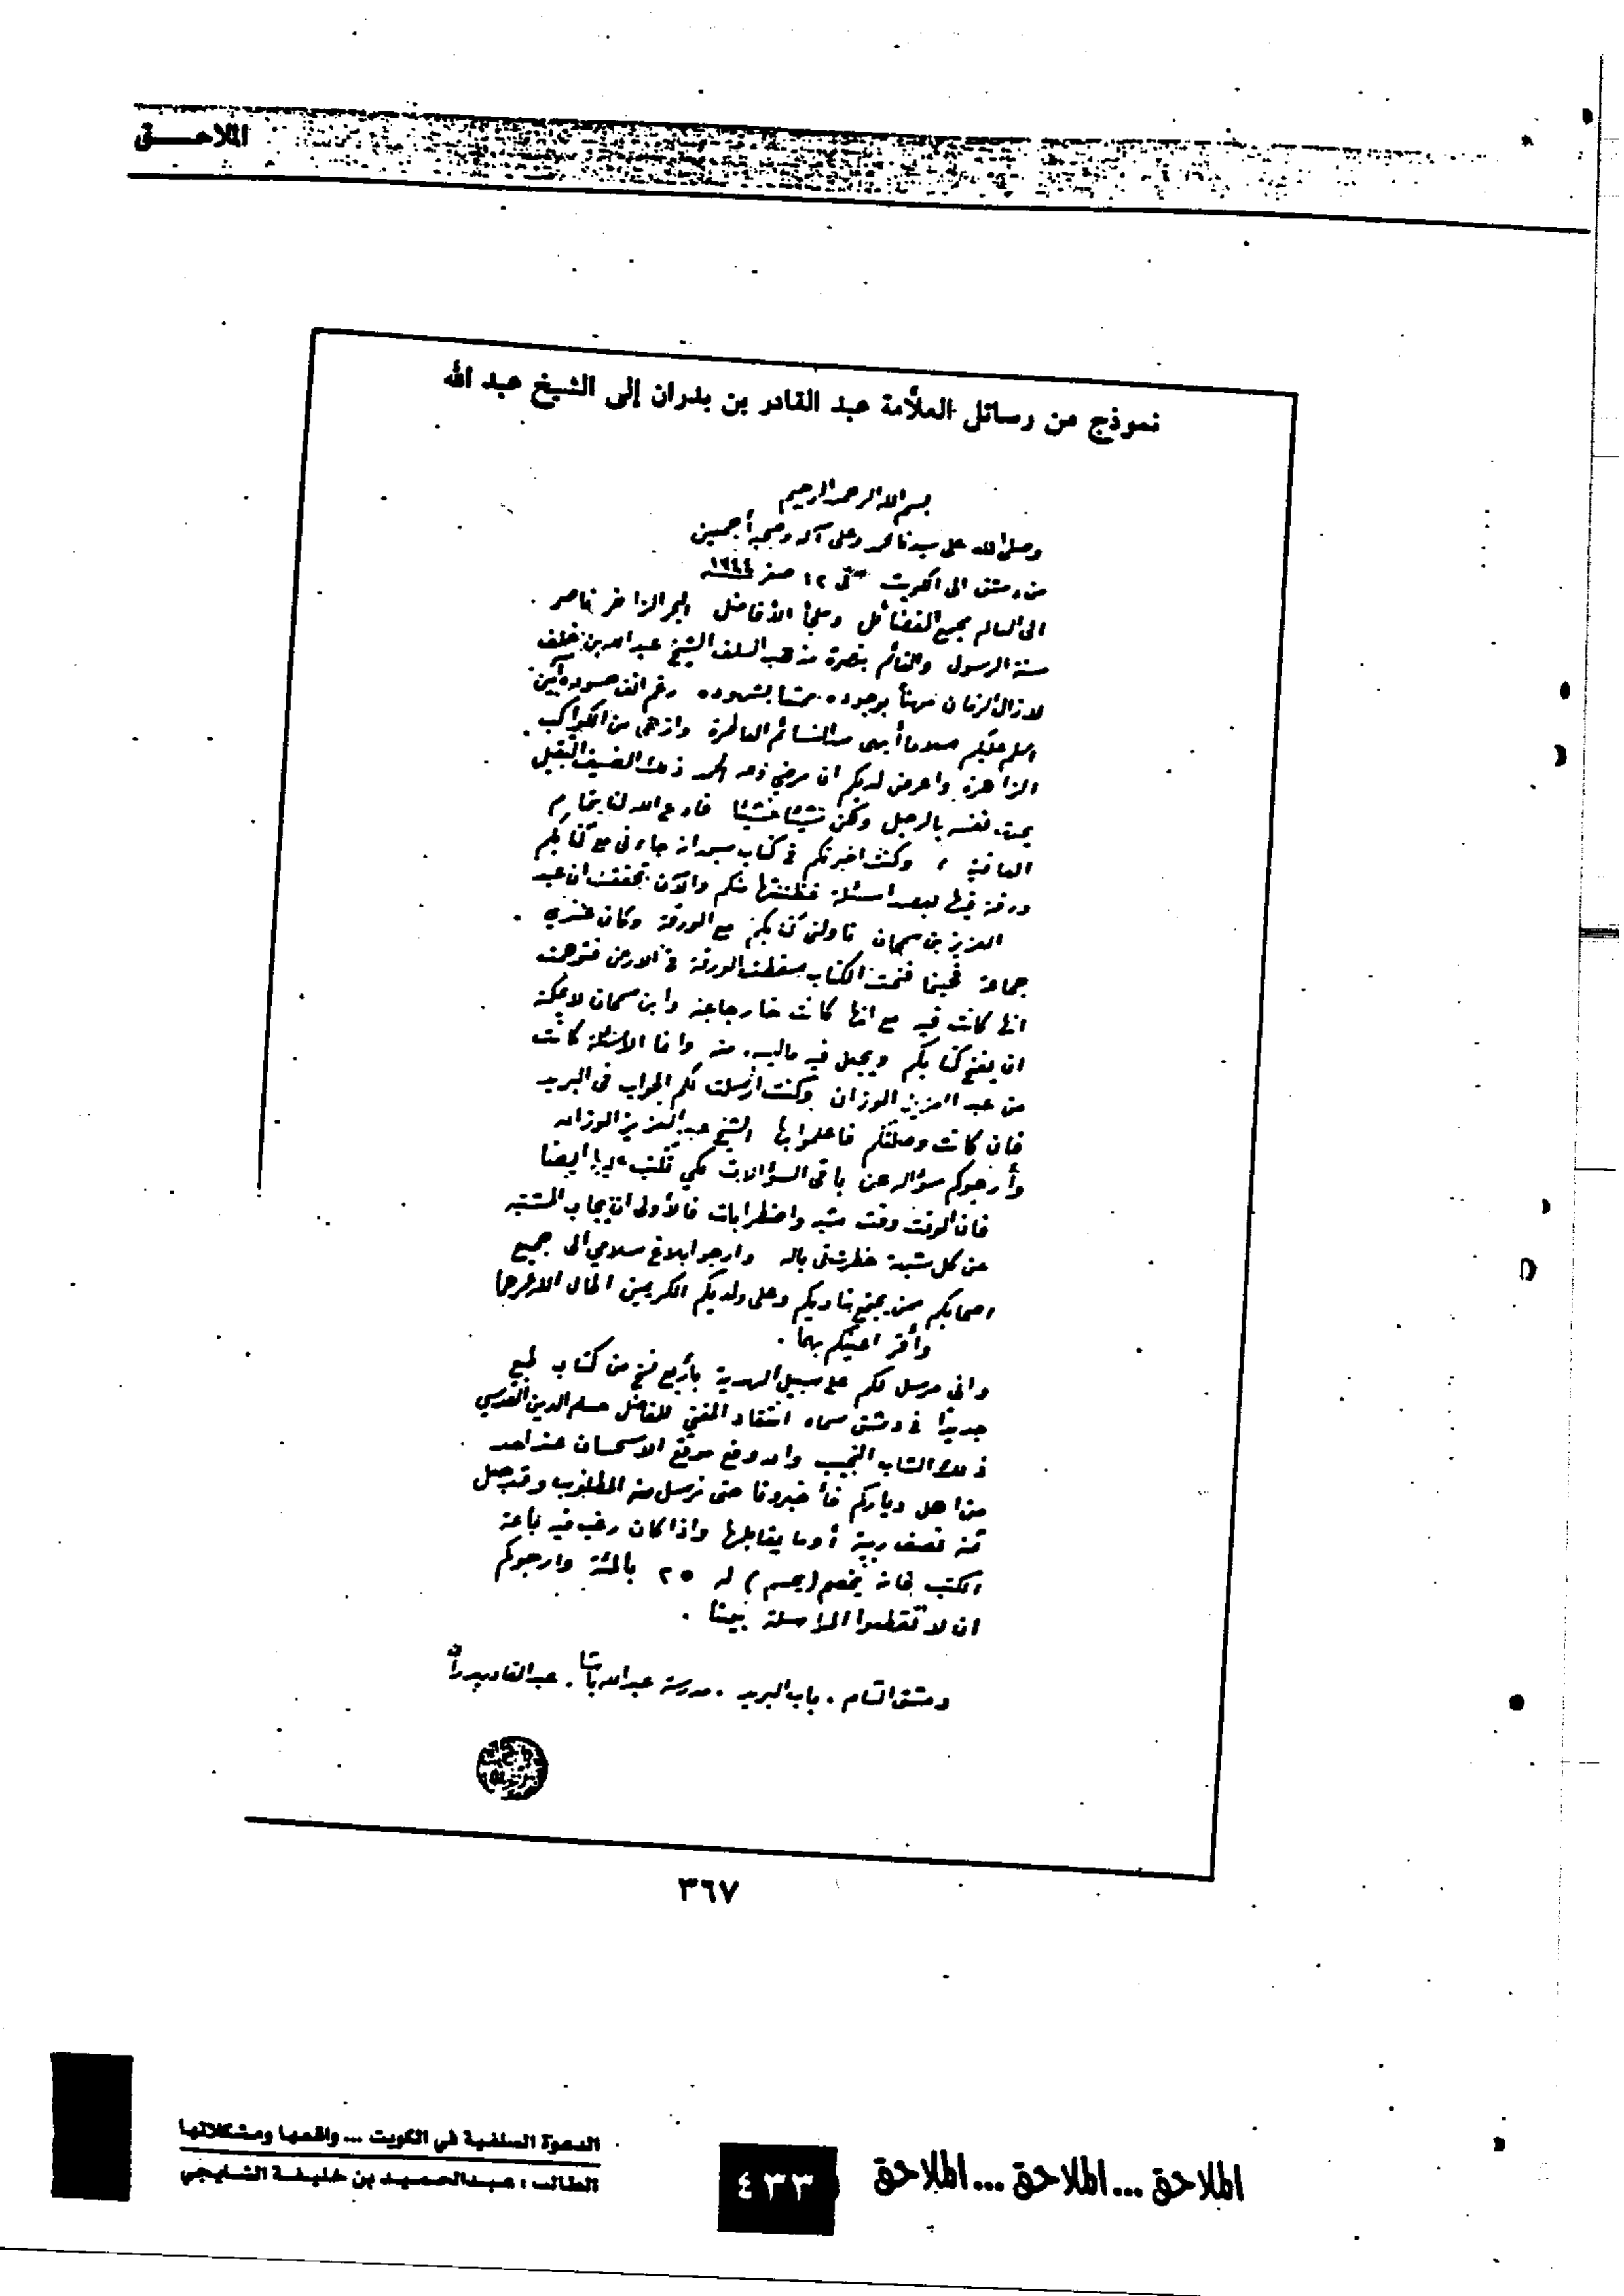 الملاحـــق
نموذج من رسائل العلاَّمة عبد القادر بن بدران إلى الشيخ عبد الله
بسم الله الرحمن الرحيم
وصلى الله على سيدنا محمد وعلى آله وصحبه أجمعين
من دمشق الى الكويت في ١٢ صفر
الى العالم مجمع الفضائل وملجأ الأفاضل البحر الزاخر ناصر
سنة الرسول والقائم بنصرة مذهب السلف الشيخ عبد الله بن خلف
لازال الزمان مهنأ بوجوده ممتعا بشهوده رغم انف حسوده آمين
اسلم عليكم سلاما أبهى من النسائم العاطرة وازهى من الكواكب
الزاهرة واعرض لديكم ان مرضي وله الحمد ذلك الضيف الثقيل
يحدث نفسه بالرحيل ولكن شيئا فشيئا فادع الله لنا بتمام
العافية ، وكنت اخبرتكم في كتاب انه جاءني مع كتابكم
ورقة فيها بعض اسئلة فظننتها منكم والآن تحققت ان عبد
العزيز بن سمحان ناولني كتابكم مع الورقة وكان عندي
جماعة فحينما فتحت الكتاب سقطت الورقة في الارض فتوهمت
انها كانت فيه مع انها كانت خارجا عنه وابن سمحان لا يمكنه
ان يفتح كتابكم ويجعل فيه ما ليس منه وانما الاسئلة كانت
من عبد العزيز الوزان وكنت ارسلت لكم الجواب في البريد
فان كانت وصلتكم فاعلموا بها الشيخ عبد العزيز الوزان
وأرجوكم سؤاله عن باقي السؤالات لكي نكتب عليها ايضا
فان الوقت وقت شبه واضطرابات فالأولى ان يجاب المشتبه
عن كل شبهة خطرت في باله وارجو ابلاغ سلامي الى جميع
اصحابكم ممن يجتمع بناديكم وعلى ولديكم الكريمين اطال الله عمرهما
وأقر اعينكم بهما .
واني مرسل لكم على سبيل الهدية بأربع نسخ من كتاب طبع
جديدا في دمشق سماه انتقاد المغني للفاضل حسام الدين القدسي
ذلك الشاب النجيب وان وقع موقع الاستحسان عند احد
من اهل دياركم فأخبرونا حتى نرسل منه المطلوب وقد جعل
ثمنه نصف ربية أو ما يقابلها واذا كان رغب فيه باعة
الكتب فانه يخصم (يحسم) له ٢٥ بالمئة وارجوكم
ان لا تقطعوا المراسلة بيننا .
دمشق الشام . باب البريد . مدرسة عبد الله باشا . عبد القادر بدران
٣٦٧
الدعوة السلفية في الكويت ... واقعها ومشكلاتها
الطالب : عبدالحميد بن خليفة الشايجي
٤٣٣
الملاحق ... الملاحق ... الملاحق